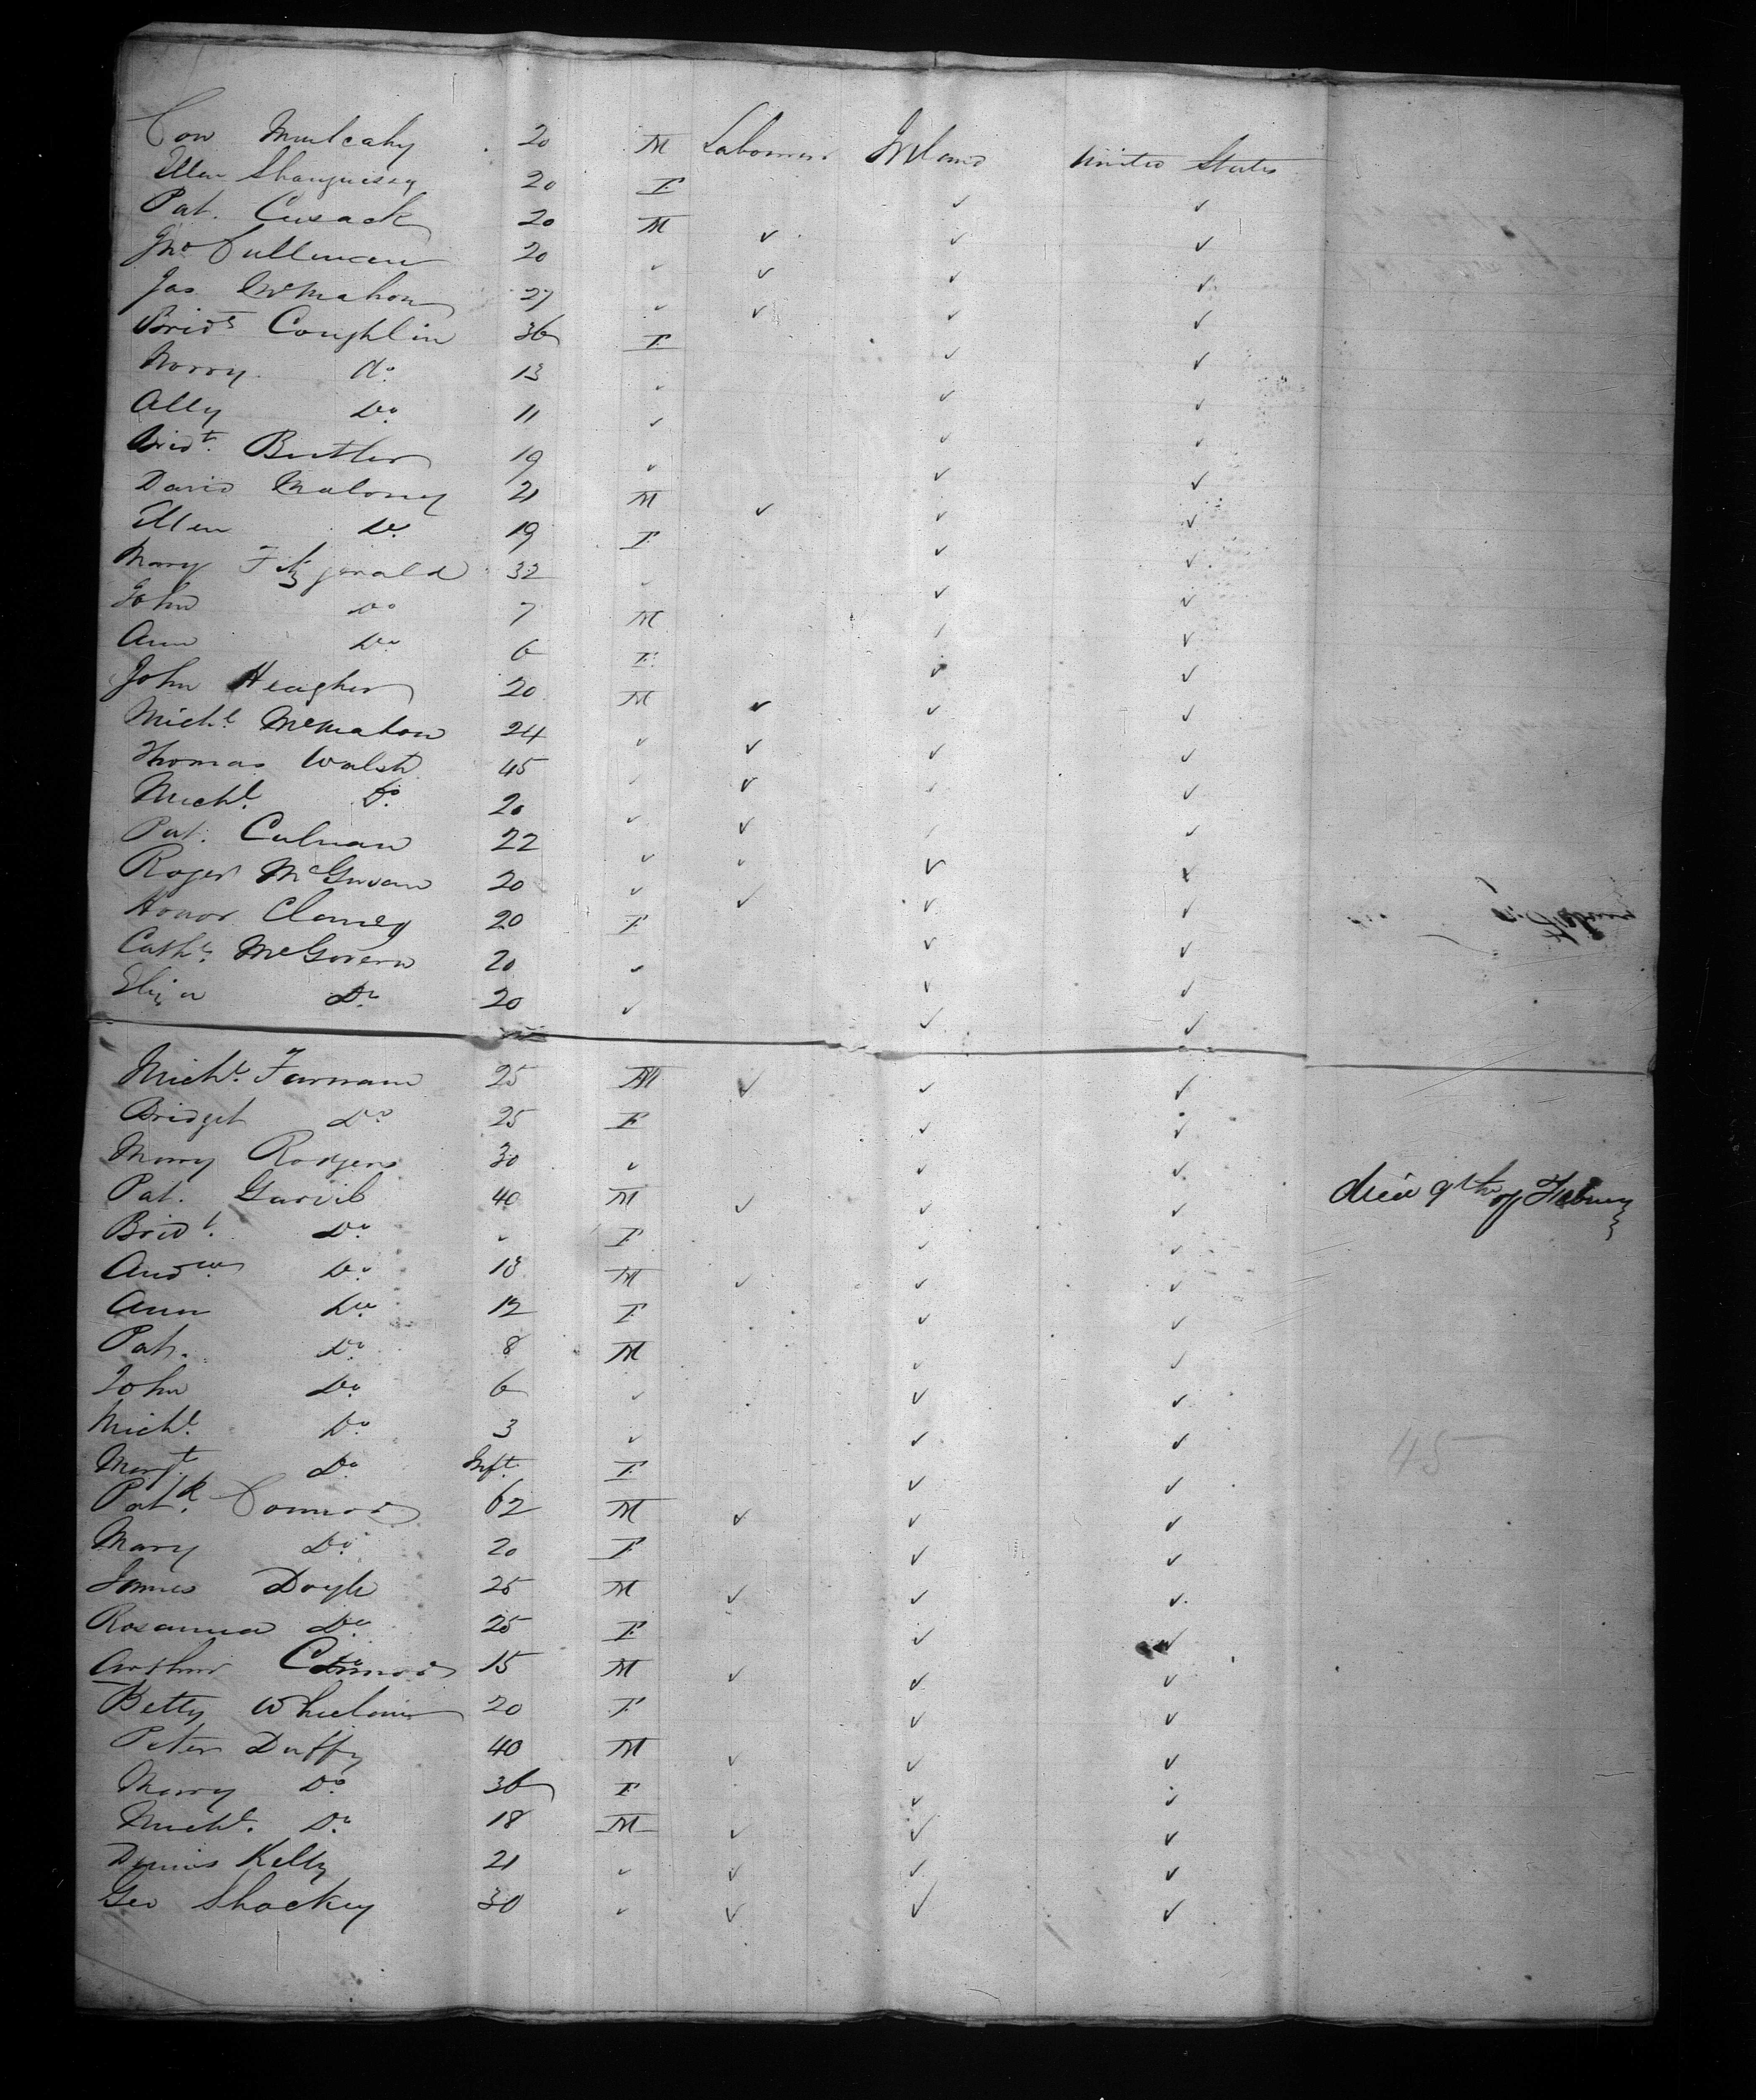 Con Mulcahy 20 M Labourer Ireland United States
Ellen Shaugnessy 20 F ✓ ✓
Pat. Cusack 20 M ✓ ✓ ✓
Jno Cullinan 20 ✓ ✓ ✓ ✓
Jas McMahon 27 ✓ ✓ ✓ ✓
Bridt Coughlin 36 F ✓ ✓
Norry Do. 13 ✓ ✓ ✓
Ally Do. 11 ✓ ✓ ✓
Bridt. Butler 19 ✓ ✓ ✓
David Maloney 21 M ✓ ✓ ✓
Ellen Do. 19 F ✓ ✓
Mary Fitzgerald 32 ✓ ✓ ✓
John Do 7 M ✓ ✓
Ann Do. 6 F ✓ ✓
John Heagher 20 M ✓ ✓ ✓
Michl. McMahon 24 ✓ ✓ ✓ ✓
Thomas Walsh 45 ✓ ✓ ✓ ✓
Michl. Do. 20 ✓ ✓ ✓ ✓
Pat. Culnan 22 ✓ ✓ ✓ ✓
Roger 20 ✓ ✓ ✓ ✓
Honor Clancy 20 F ✓ ✓
Cathe. McGovern 20 ✓ ✓ ✓
Eliza Do. 20 ✓ ✓ ✓
Michl. Farnam 25 M ✓ ✓ ✓
Bridget Do 25 F ✓ ✓
Mary Rodgers 30 ✓ ✓ ✓
Pat. 40 M ✓ ✓ ✓ died 9th of
Bridt. Do. ✓ F ✓ ✓
Andw. Do. 13 M ✓ ✓ ✓
Ann Do. 12 F ✓ ✓
Pat. Do. 8 M ✓ ✓
John Do. 6 ✓ ✓ ✓
Michl. Do. 3 ✓ ✓ ✓
45
Margt. Do. Inft. F ✓ ✓
Patk. Connor 62 M ✓ ✓ ✓
Mary Do. 20 F ✓ ✓
James Doyle 25 M ✓ ✓ ✓
Rosanna Do. 25 F ✓ ✓
Arthur Connor 15 M ✓ ✓ ✓
Betty 20 F ✓ ✓
Peter Duffy 40 M ✓ ✓ ✓
Mary Do. 36 F ✓ ✓
Michl. Do. 18 M ✓ ✓ ✓
Dennis Kelly 21 ✓ ✓ ✓ ✓
Geo Shockey 30 ✓ ✓ ✓ ✓